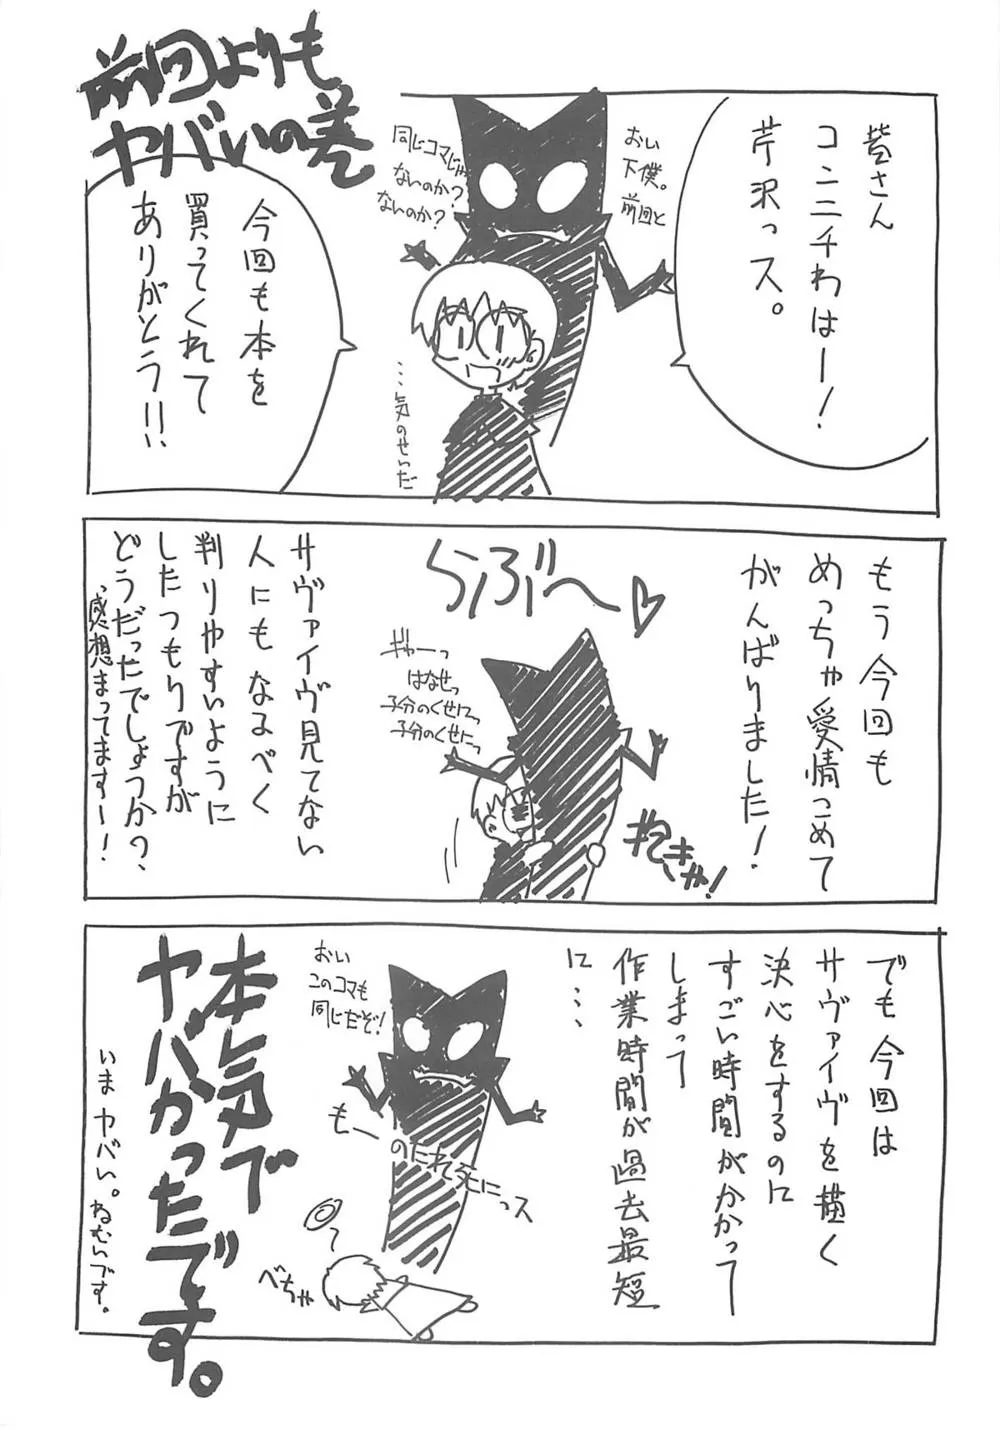 前回よりも
ヤバいの巻
皆さん
コニニチわはー!
芹沢っス。
おい
下僕。
前回と
同じコマじゃ
ないのか?
ないのか?
…気のせいだ
今回も本を
買ってくれて
ありがとう!!
もう今回も
めっちゃ愛情こめて
がんばりました!
らぶ〜♡
ぎゃーっ
はなせっ
子分のくせにっ
子分のくせにっ
抱きゃ!
サヴァイヴ見てない
人にもなるべく
判りやすいように
したつもりですが
どうだったでしょうか?、
感想まってますー!
でも今回は
サヴァイヴを描く
決心をするのに
すごい時間がかかって
しまって
作業時間が過去最短
に…
おい
このコマも
同じだぞ!
もーのたれ死にっス
べちゃ
本気で
ヤバかったです。
いまヤバい。ねむいです。